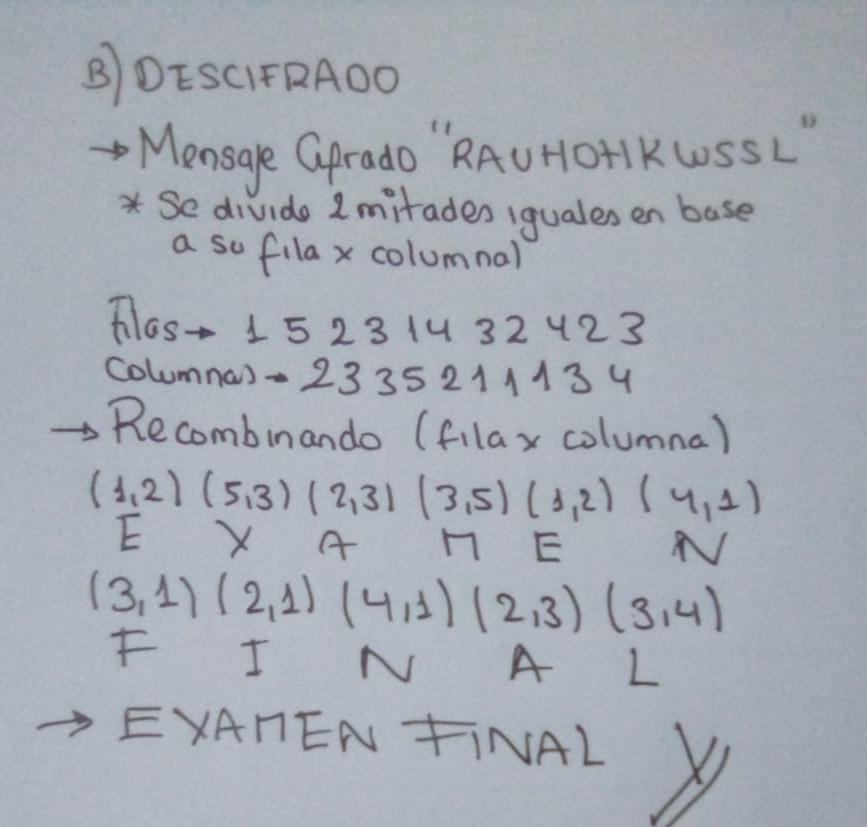 B) DESCIFRADO
→ Mensaje Cifrado "RAUHOHKWSSL"
* Se divide 2 mitades iguales en base
a su fila x columna)
Filas → 1 5 2 3 1 4 3 2 4 2 3
Columnas → 2 3 3 5 2 1 1 1 1 3 4
→ Recombinando (fila x columna)
(1,2) (5,3) (2,3) (3,5) (1,2) (4,1)
E X A M E N
(3,1) (2,1) (4,1) (2,3) (3,4)
F I N A L
→ EXAMEN FINAL